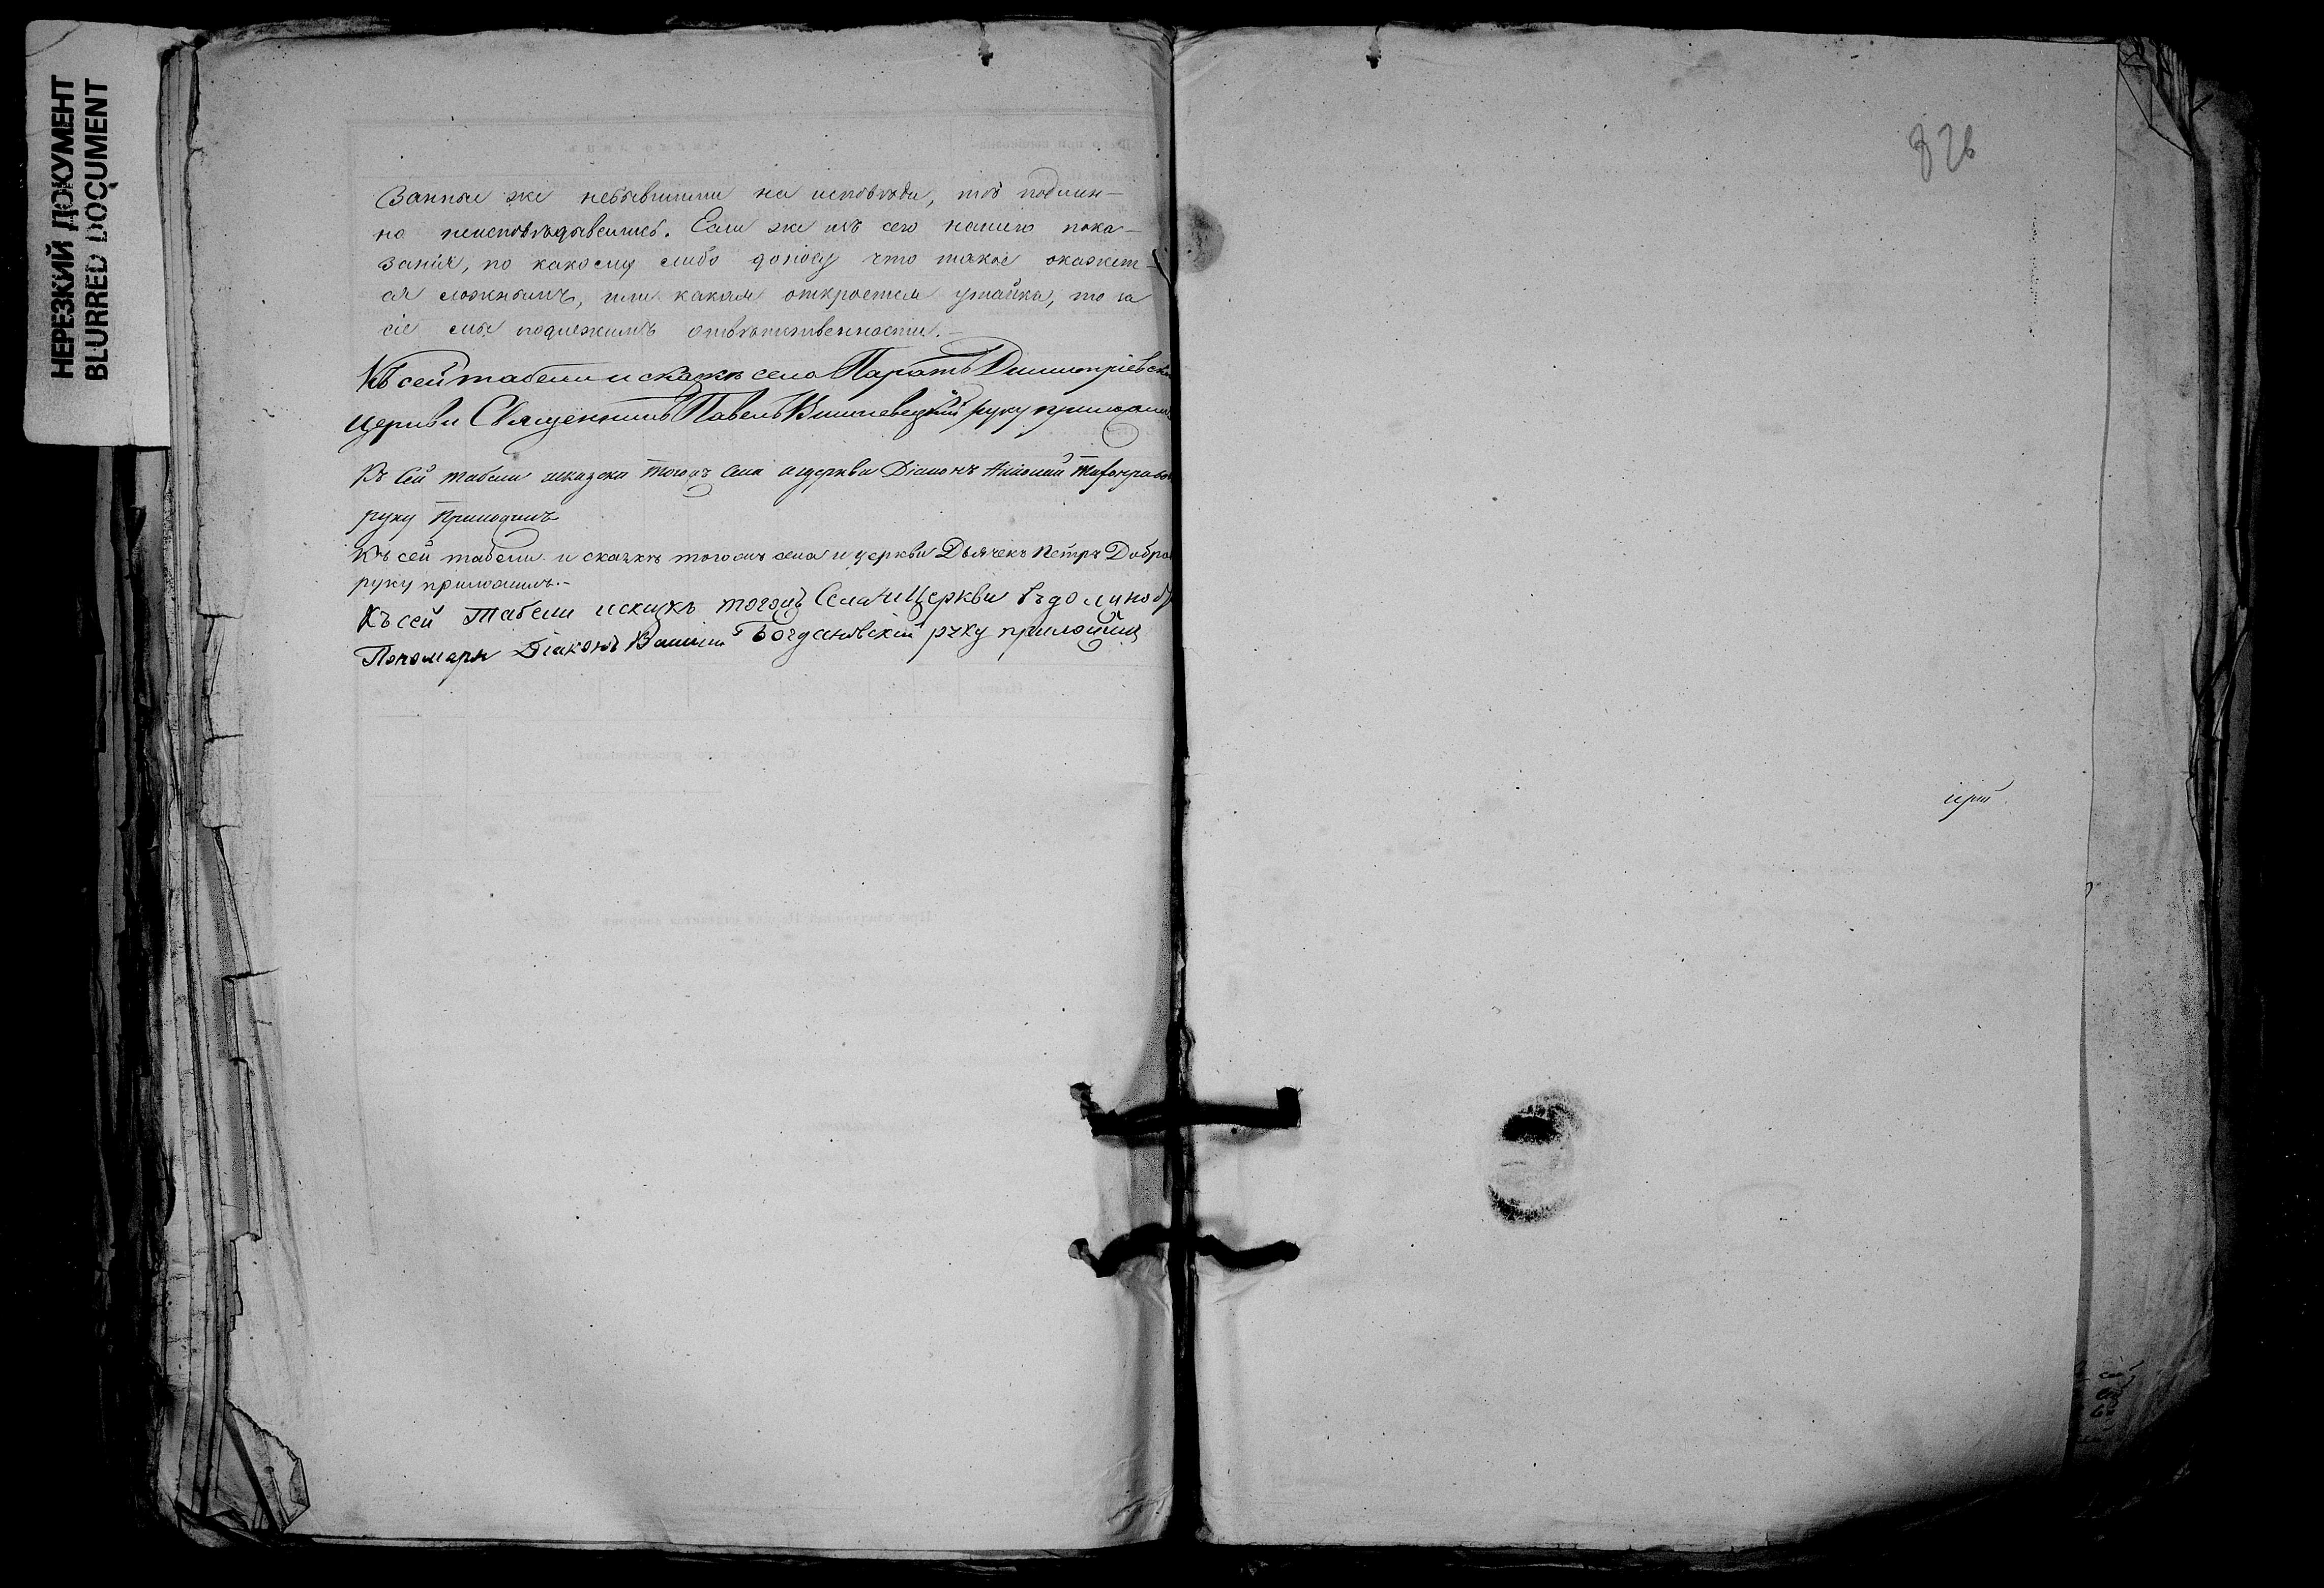 НЕРЕЗКИЙ ДОКУМЕНТ
BLURRED DOCUMENT
занные же небывшими на исповѣди, тѣ подлин-
но неисповѣдывались. Если же изъ сего нашего пока-
занія, по какому либо доносу что такое окажет-
ся ложнымъ, или какая откроется утайка, то за
сіе мы подлежимъ отвѣтственности.-
Къ сей табели и сказкѣ села Паратъ Димитріевск
церкви Священникъ Павелъ Вишневецкій руку приложилъ
Къ сей табели и сказки тогожъ села и церкви Діаконъ
руку приложилъ
Къ сей табели и сказкѣ тогожъ села и церкви Дьячекъ Петръ Добро
руку приложилъ.-
Къ сей Табели и сказкѣ тогожъ Села и Церкви въ должноб
Пономаря Діаконъ Богдановскій руку приложилъ
826